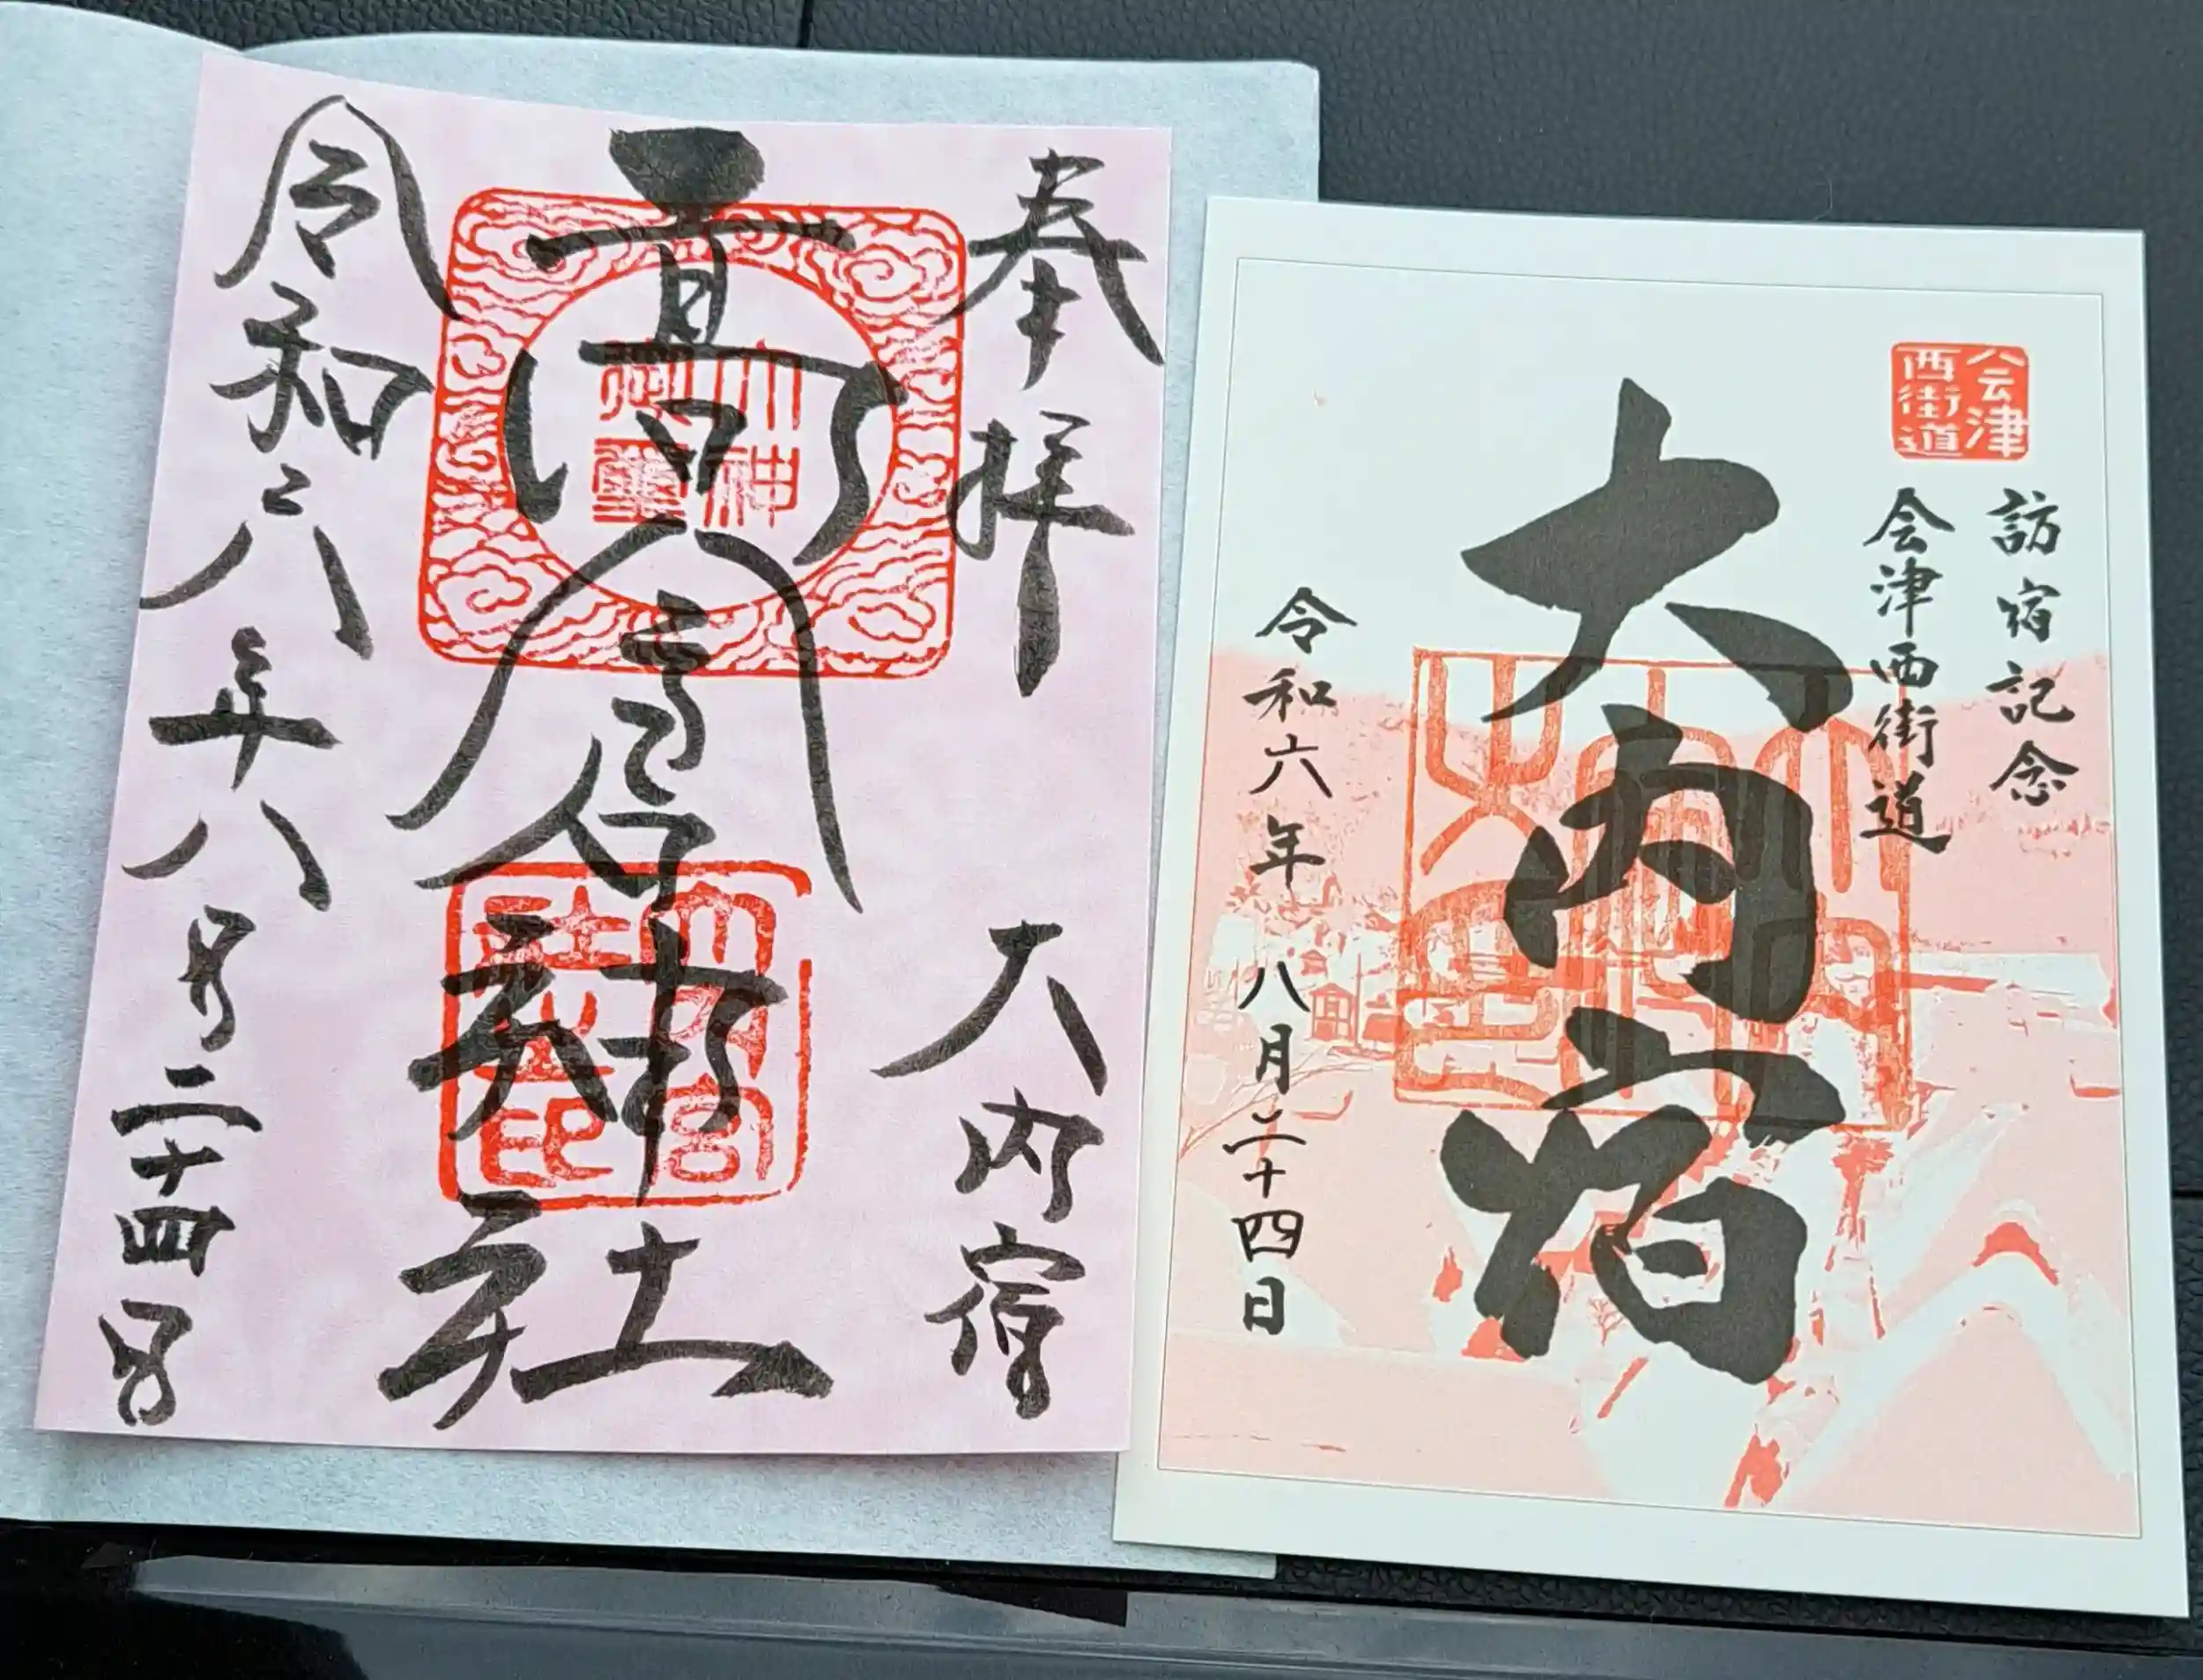 奉拝
大内宿
高倉神社
令和六年八月二十四日
会津
西街道
訪宿記念
会津西街道
大内宿
令和六年八月二十四日